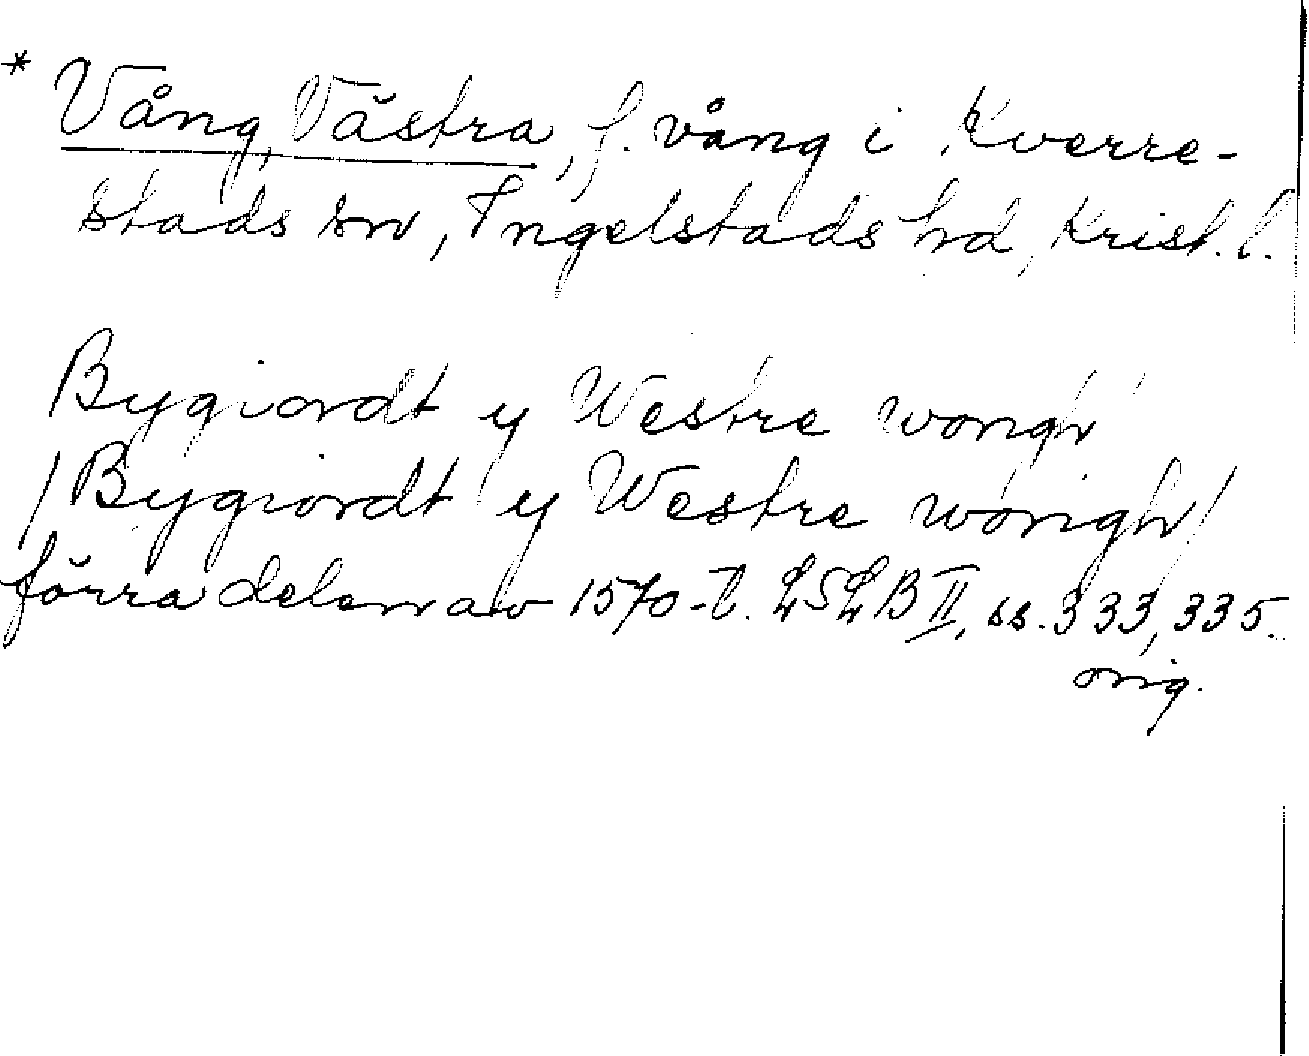 * Vång, Västra, f. vång i Kverre-
stads sn, Ingelstads hd, Krist. l.
Bygiordt y Westre wongh
/Bygiordt y Westre wongh/
förra delen av 1570-t. LSLB II, ss. 333, 335.
orig.